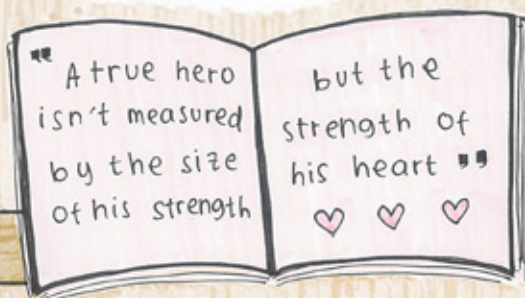 " A true hero
isn't measured
by the size
of his strength
but the
strength of
his heart "